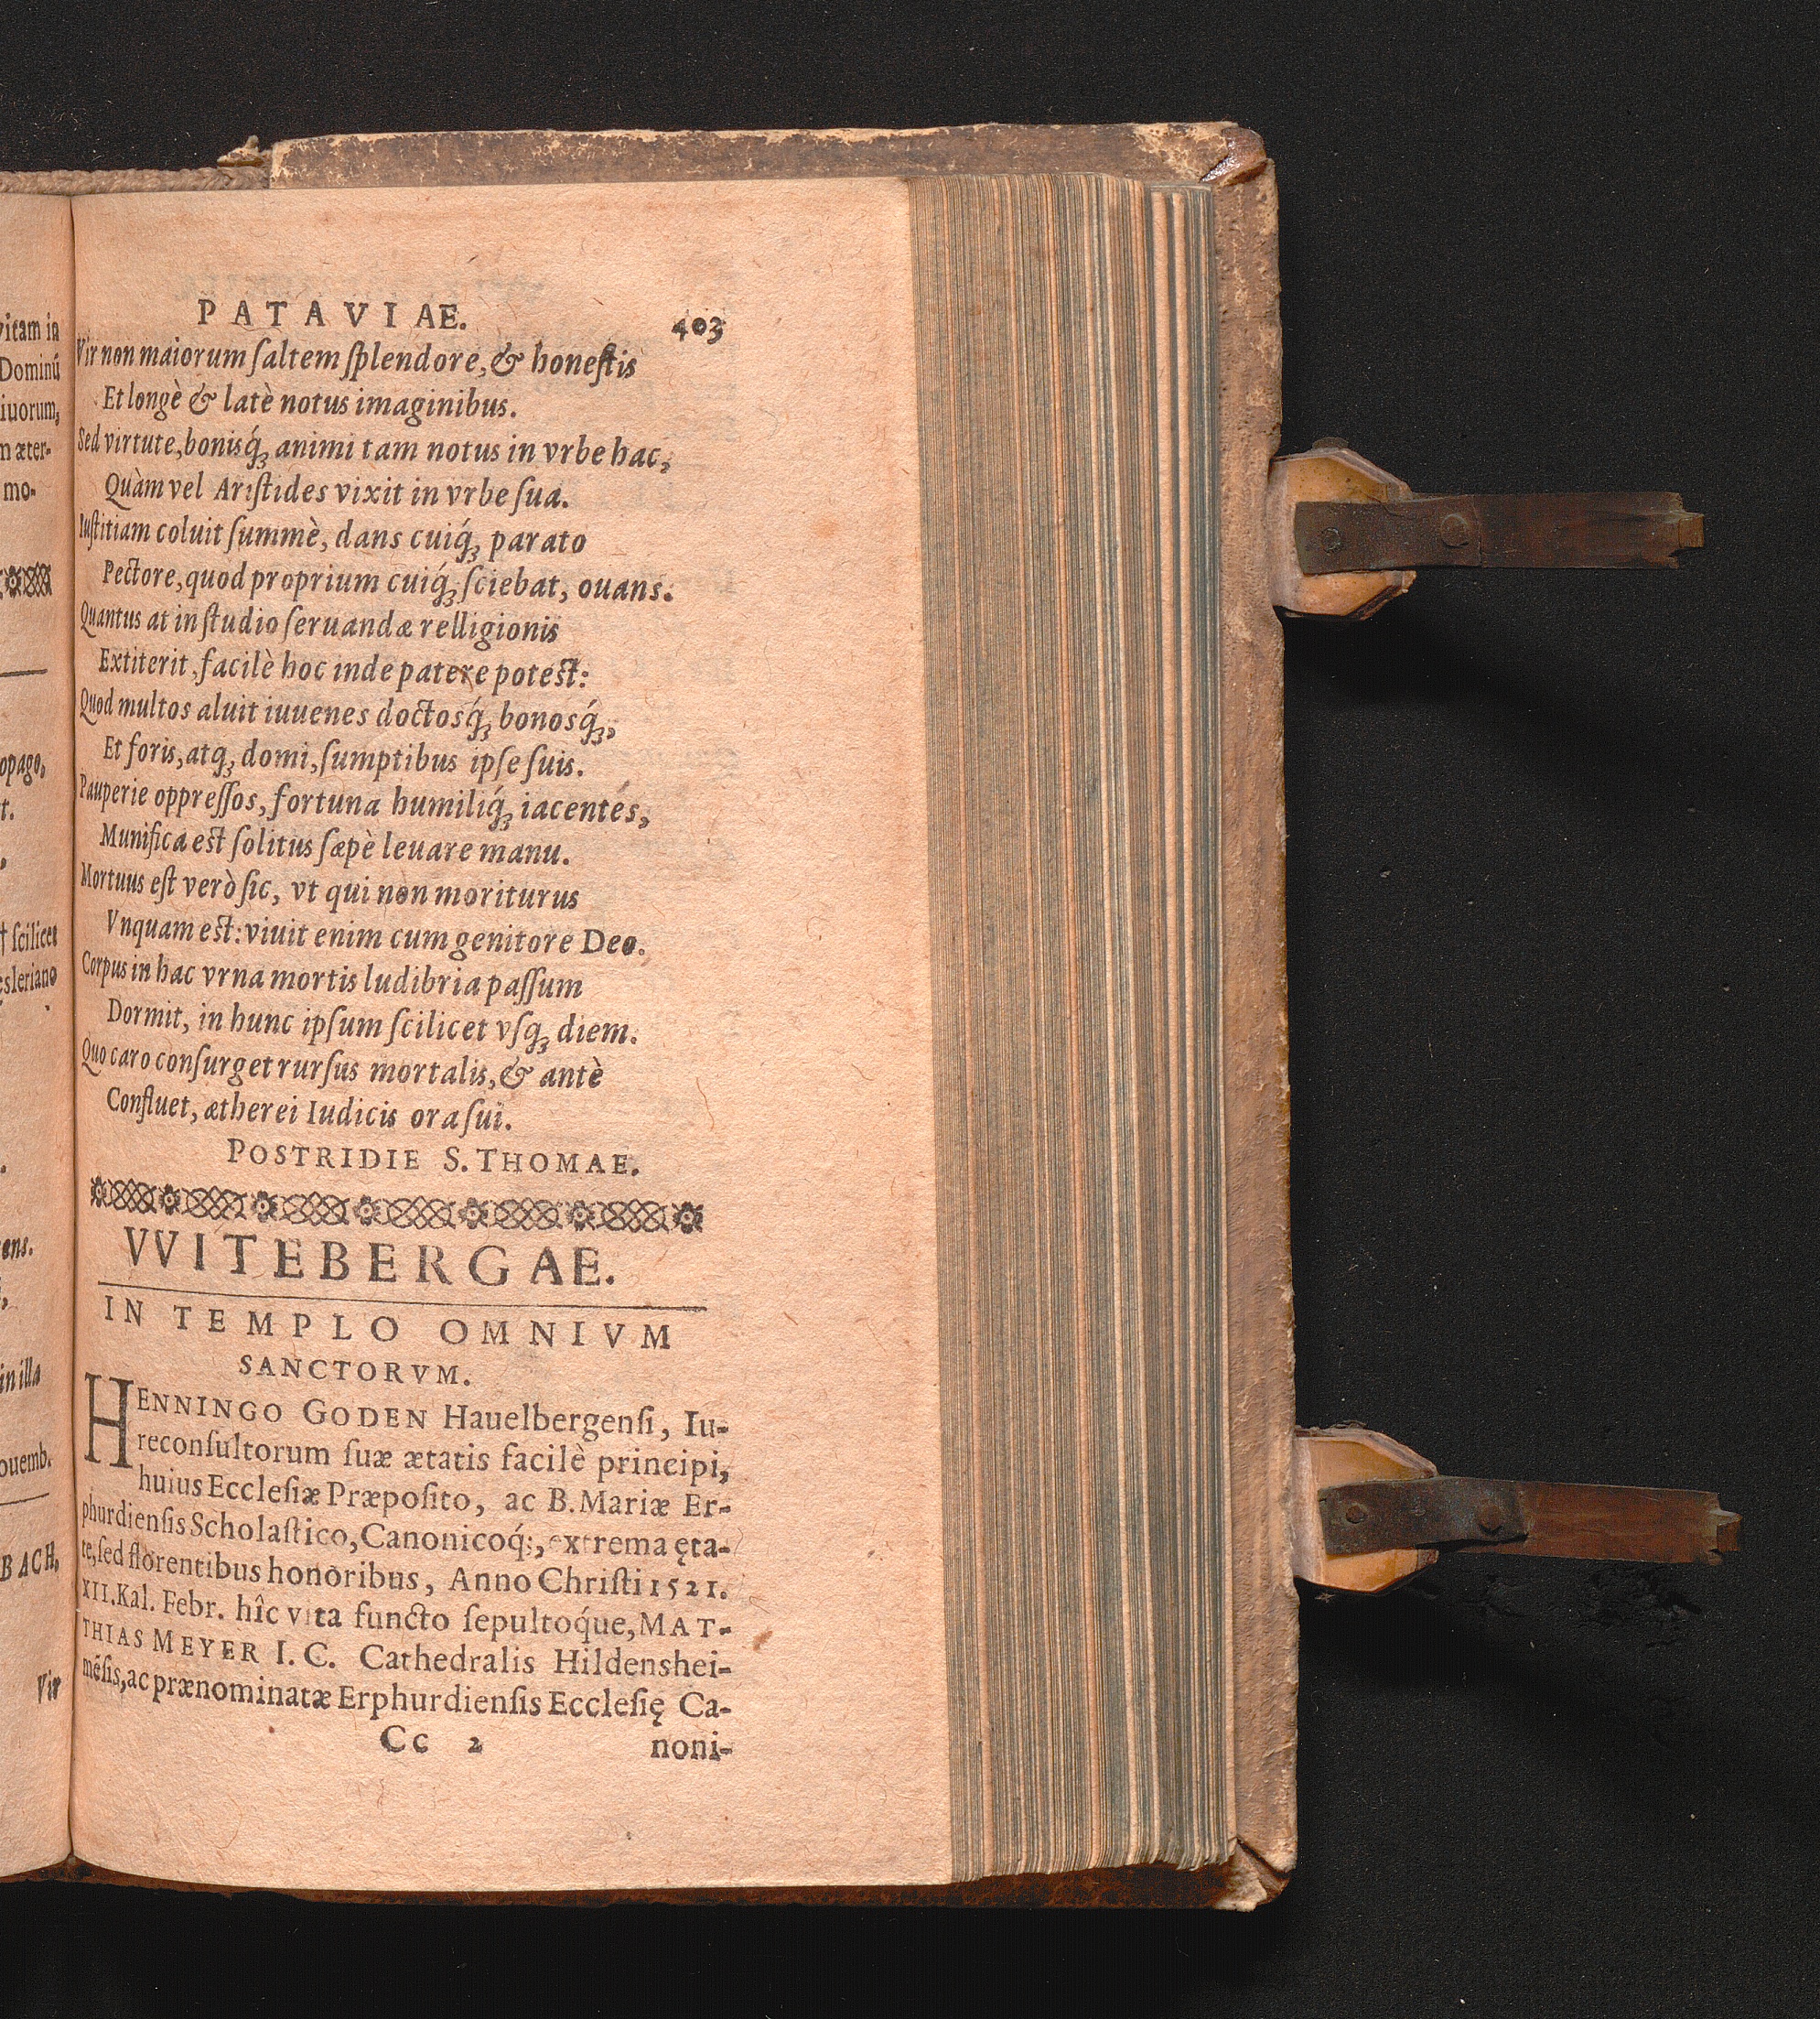 vitam in
Dominū
iuorum,
m æter-
mo-
opago,
t.
† ſcilicet
esleriano
ens.
in illa
ouemb.
BACH,
Vir
PATAVIAE. 403
Vir non maiorum ſaltem ſplendore, & honeſtis
Et longè & latè notus imaginibus.
Sed virtute, bonisq́ꝫ animi tam notus in vrbe hac,
Quàm vel Ariſtides vixit in vrbe ſua.
Iuſtitiam coluit ſummè, dans cuiq́ꝫ parato
Pectore, quod proprium cuiq́ꝫ ſciebat, ouans.
Quantus at in ſtudio ſeruandæ relligionis
Extiterit, facilè hoc inde patere poteſt:
Quod multos aluit iuuenes doctosq́ꝫ bonosq́ꝫ,
Et foris, atqꝫ domi, ſumptibus ipſe ſuis.
Pauperie oppreſſos, fortuna humiliq́ꝫ iacentes,
Munifica eſt ſolitus ſæpè leuare manu.
Mortuus eſt verò ſic, vt qui non moriturus
Vnquam eſt: viuit enim cum genitore Deo.
Corpus in hac vrna mortis ludibria paſſum
Dormit, in hunc ipſum ſcilicet vſqꝫ diem.
Quo caro conſurget rurſus mortalis, & antè
Confluet, ætherei Iudicis ora ſui.
POSTRIDIE S. THOMAE.
VVITEBERGAE.
IN TEMPLO OMNIVM
SANCTORVM.
HENNINGO GODEN Hauelbergenſi, Iu-
reconſultorum ſuæ ætatis facilè principi,
huius Eccleſiæ Præpoſito, ac B. Mariæ Er-
phurdienſis Scholaſtico, Canonicoq́;, extrema ęta-
te, ſed florentibus honoribus, Anno Chriſti 1521.
XII. Kal. Febr. hîc vita functo ſepultoq́ue, MAT-
THIAS MEYER I. C. Cathedralis Hildenshei-
mēſis, ac prænominatæ Erphurdienſis Eccleſię Ca-
Cc 2 noni-